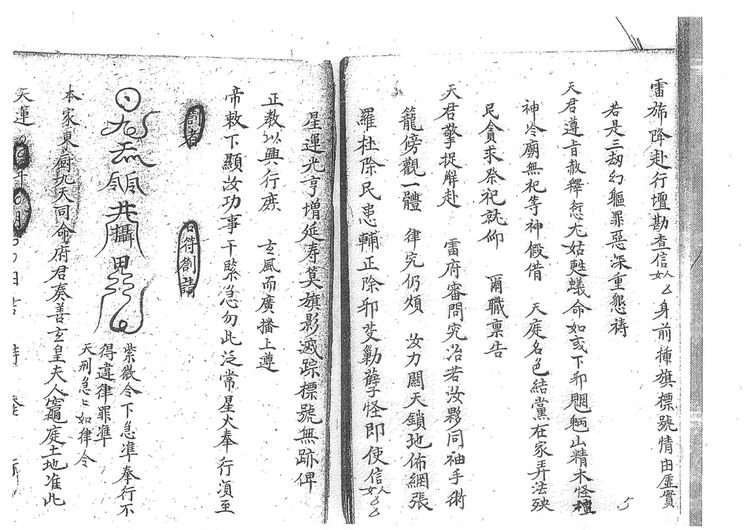 雷旆降赴行壇勘查信女厶厶身前揷旗標號情由虛實
若是三刼幻軀罪惡深重懇禱
天君遵旨赦釋愆尤姑甦蟻命如或下邪魍魎山精木怪壇
神冷廟無祀等神假借 天庭名色結黨在家弄法殃
民貪求祭祀訧仰 爾職稟告
天君擎捉觧赴 雷府審問究治若汝夥同袖手術
籠傍觀一體 律究仍煩 汝力関天鎖地佈網張
羅杜除民患輔正除邪芟勦孽怪即使信女厶厶
星運光亨增延寿莫旗影滅踪標號無跡俾
正教以興行庻 玄風而廣播上遵
帝敕下顯汝功事干緊急勿此泛常星火奉行湏至
劄者 右符劄請
紫微令下急準奉行不
得違律罪準
天刑急々如律令
本家東厨九天司命府君奏善玄皇夫人竈庭土地准此
天運 年 月 日吉時